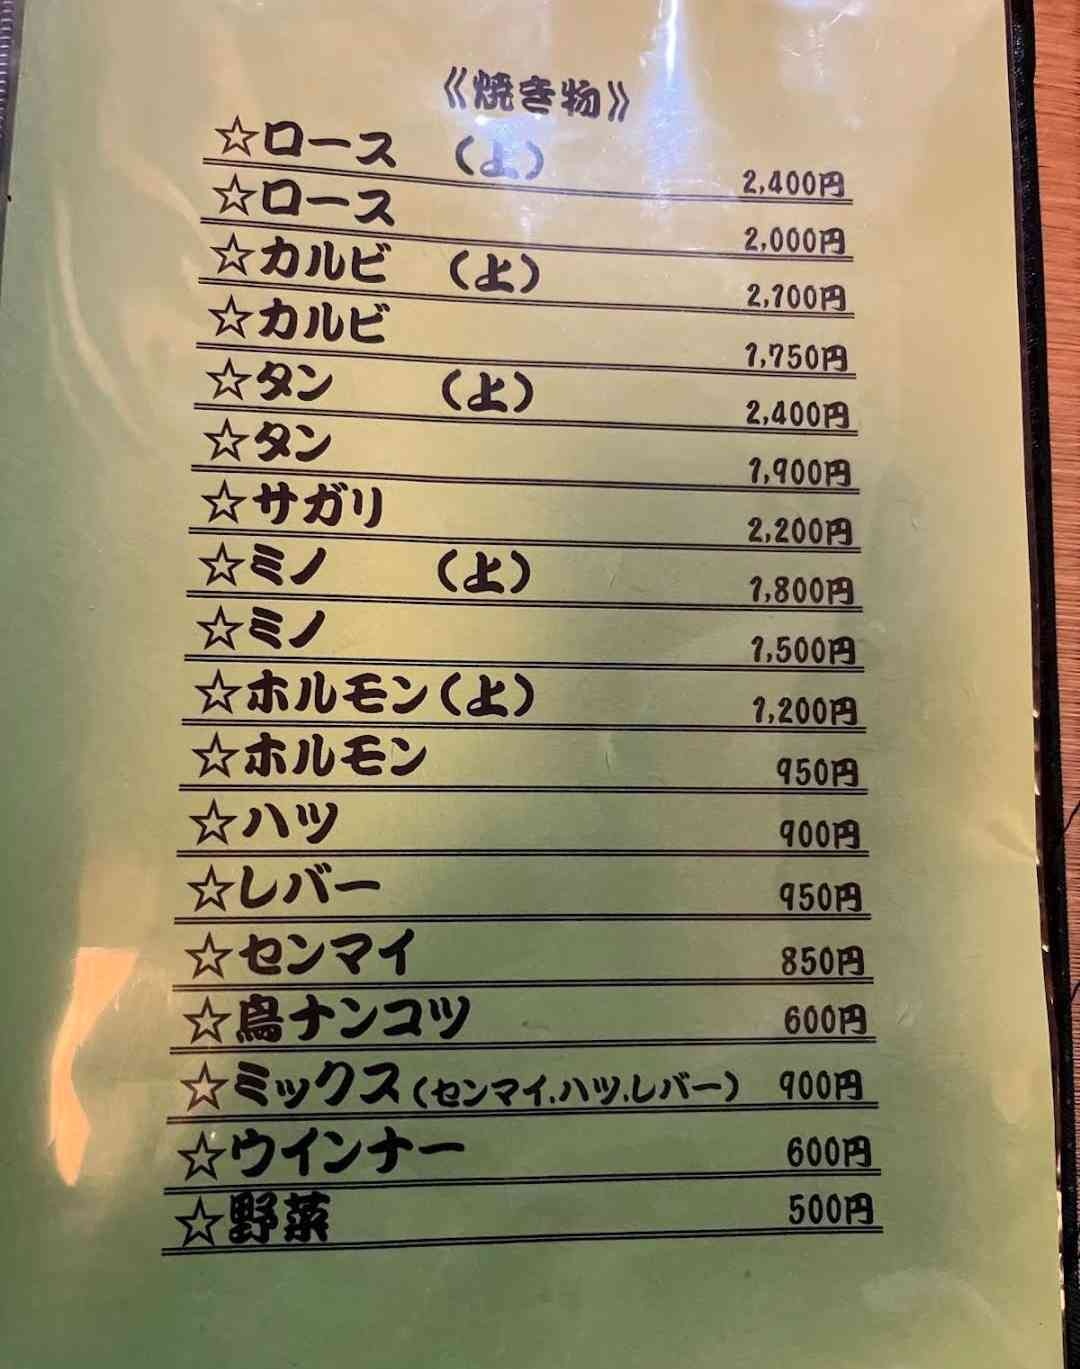 《焼き物》
☆ロース （上） 2,400円
☆ロース 2,000円
☆カルビ （上） 2,100円
☆カルビ 1,750円
☆タン （上） 2,400円
☆タン 1,900円
☆サガリ 2,200円
☆ミノ （上） 1,800円
☆ミノ 1,500円
☆ホルモン（上） 1,200円
☆ホルモン 950円
☆ハツ 900円
☆レバー 950円
☆センマイ 850円
☆鳥ナンコツ 600円
☆ミックス（センマイ.ハツ.レバー） 900円
☆ウインナー 600円
☆野菜 500円